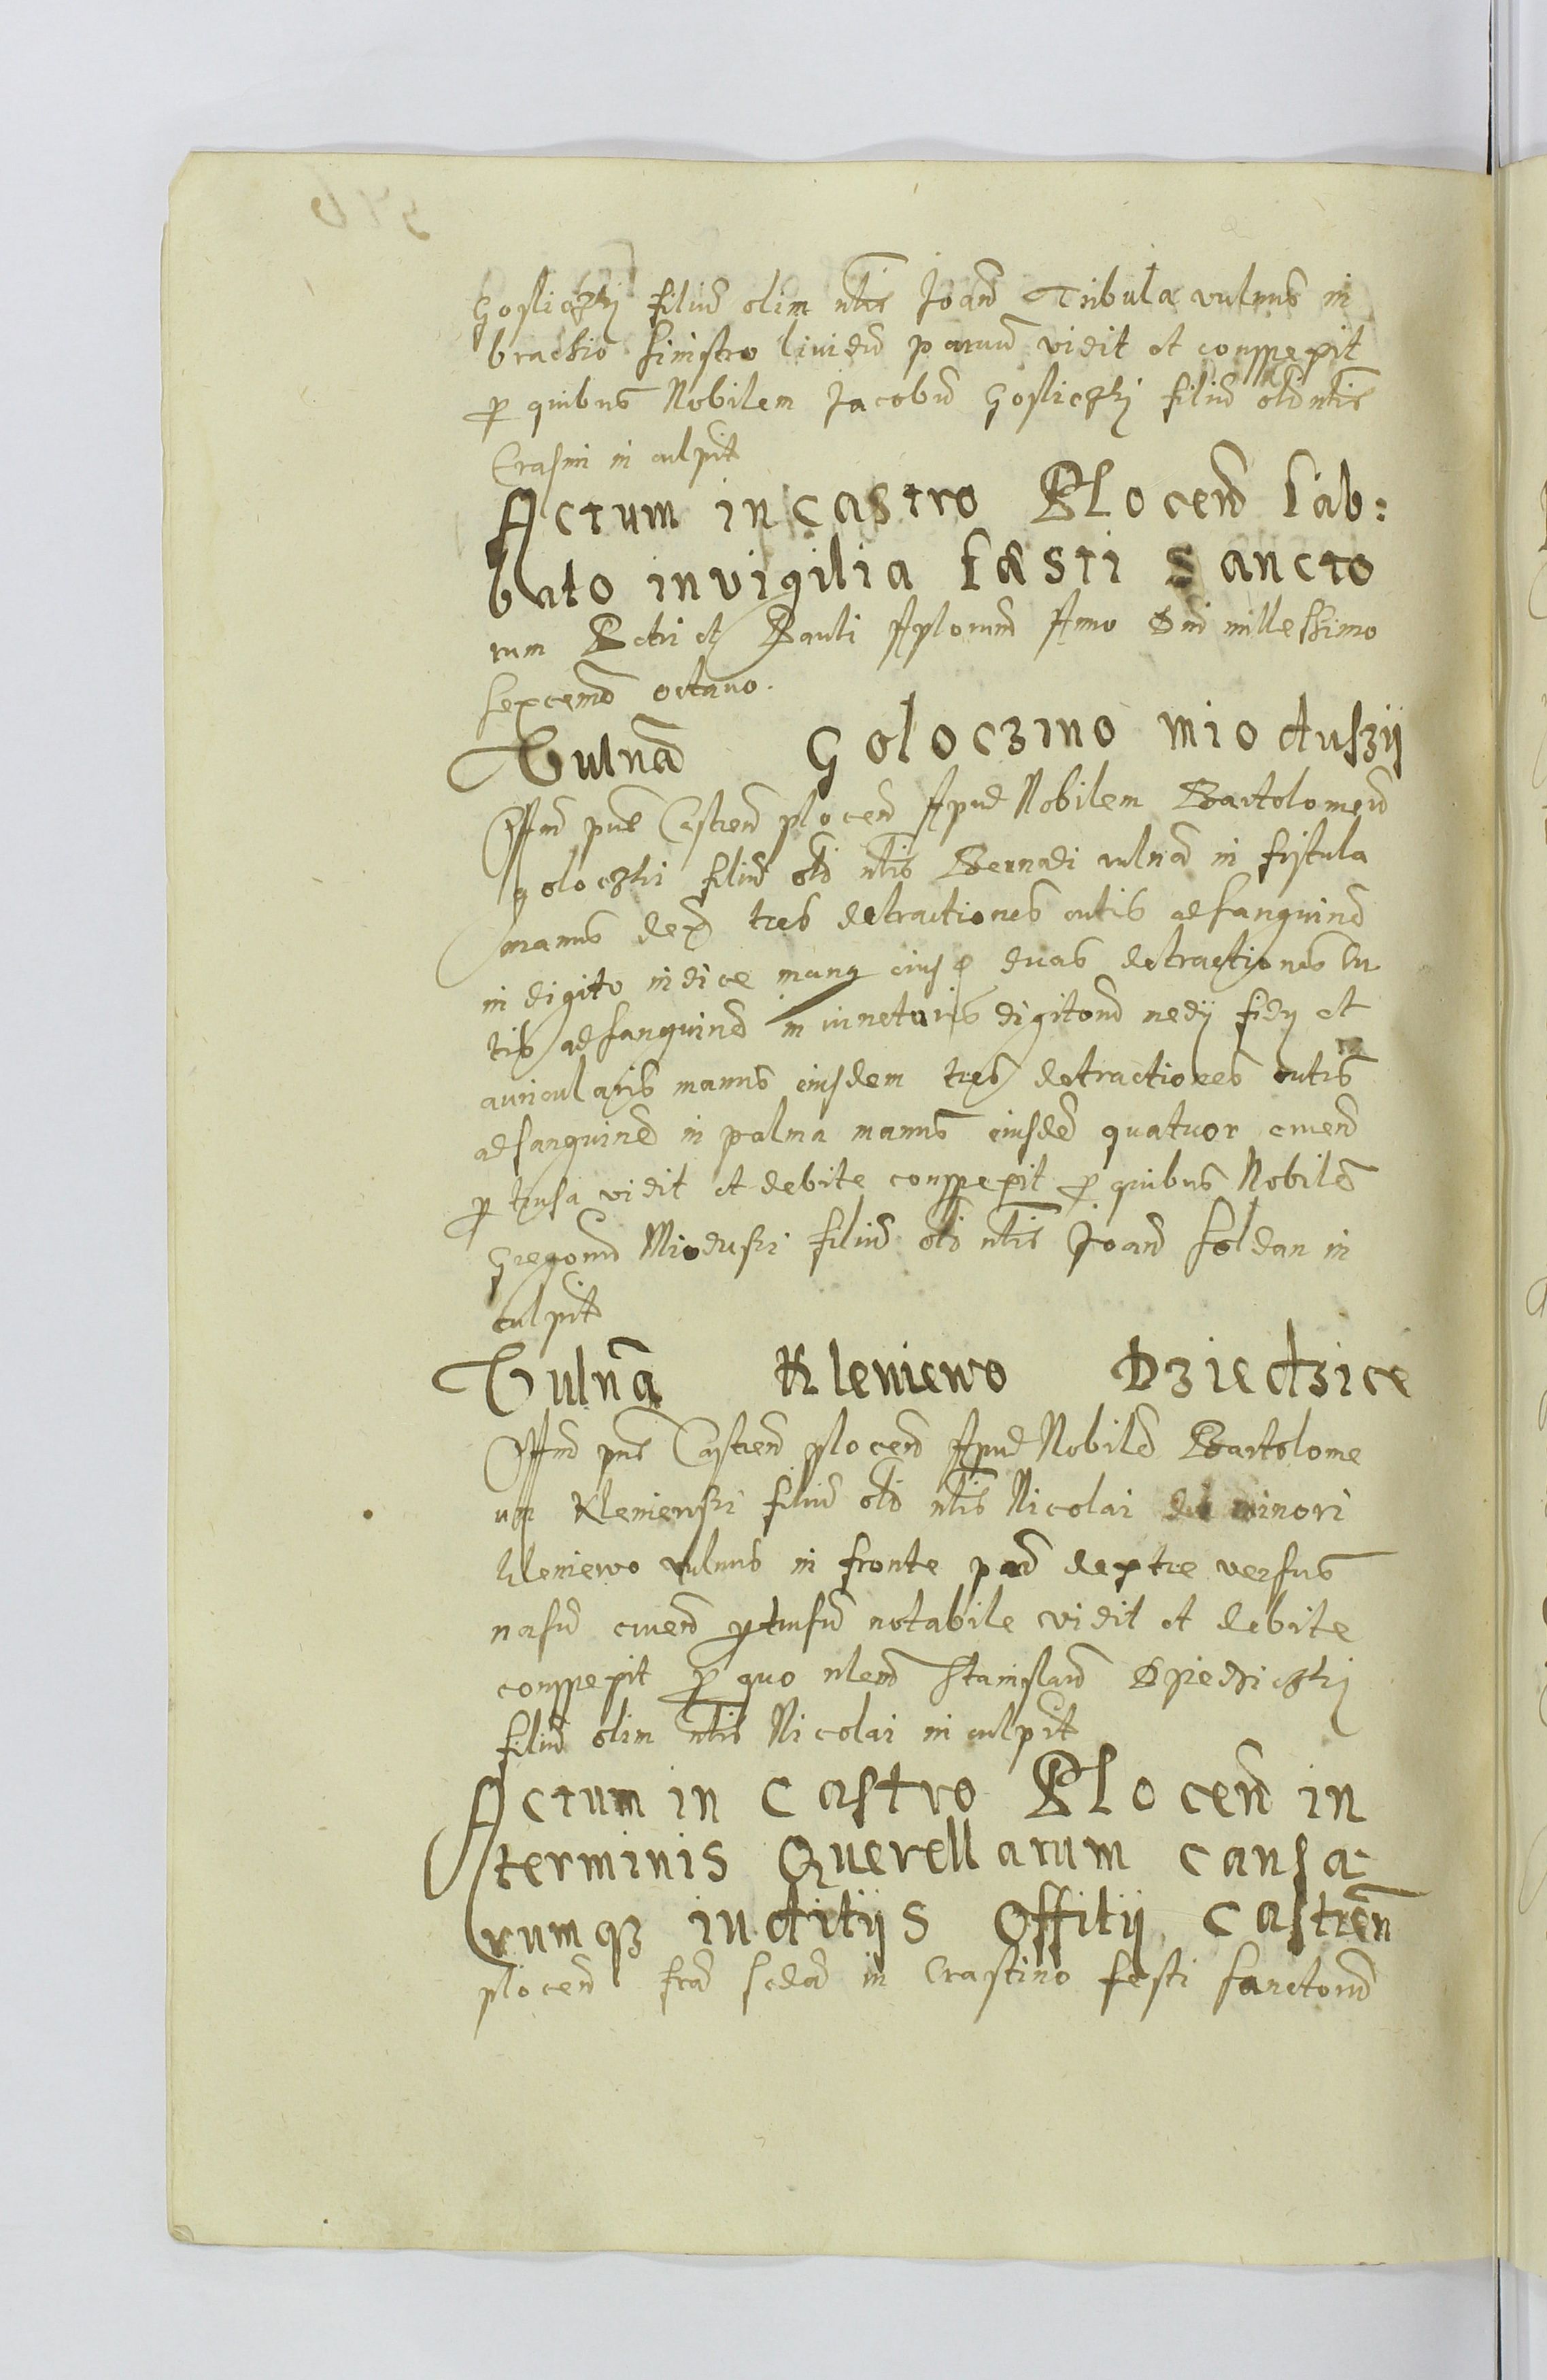 Gosliczkj filiu olim nlis Joan Tribula vulnus in
brachio sinistro liuidu paruu vidit et conspexit
p quibus Nobilem Jacobu Gosliczkj filiu oli nlis
Erasmi in culpit
Actum in castro Plocen Sab:
bato in vigilia faesti Sancto
rum Petri et Pauli Aplorum Anno Dni millessimo
sexcenm octauo.
Vulna Goloczino Mioduszij
Offm pns Castren plocen Apud Nobilem Bartolomeu
goloczki filiu oli nlis Bernadi vulna in fistula
manus dex tres detractiones cutis ad sanguine
in digito indice manq eiusd duas detractiones Cu
tis ad sanguine in iuncturis digitoru medij fidij et
auricularis manus eiusdem tres detractiones cutis
ad sanguine in palma manus eiusde quatuor cruen
p tusa vidit et debite conspexit p quibus Nobile
Gregoriu Mioduski filiu oli nlis Joan Soldan in
culpit
Vulna Kleniewo Dziedzice
Offm pns Castren plocen Apud Nobile Bartolome
um Kleniewski filiu oli nlis Nicolai de minori
kleniewo vulnus in fronte par dextre versus
nasu cruen ptusu notabile vidit et debite
conspexit p quo nlem Stanislau Dziedziczkj
filiu olim nlis Nicolai in culpit
Actum in Castro Plocen in
terminis Querellarum causa
rumqz iuditijs Offitij Castren
plocen fra scda in Crastino festi sanctoru